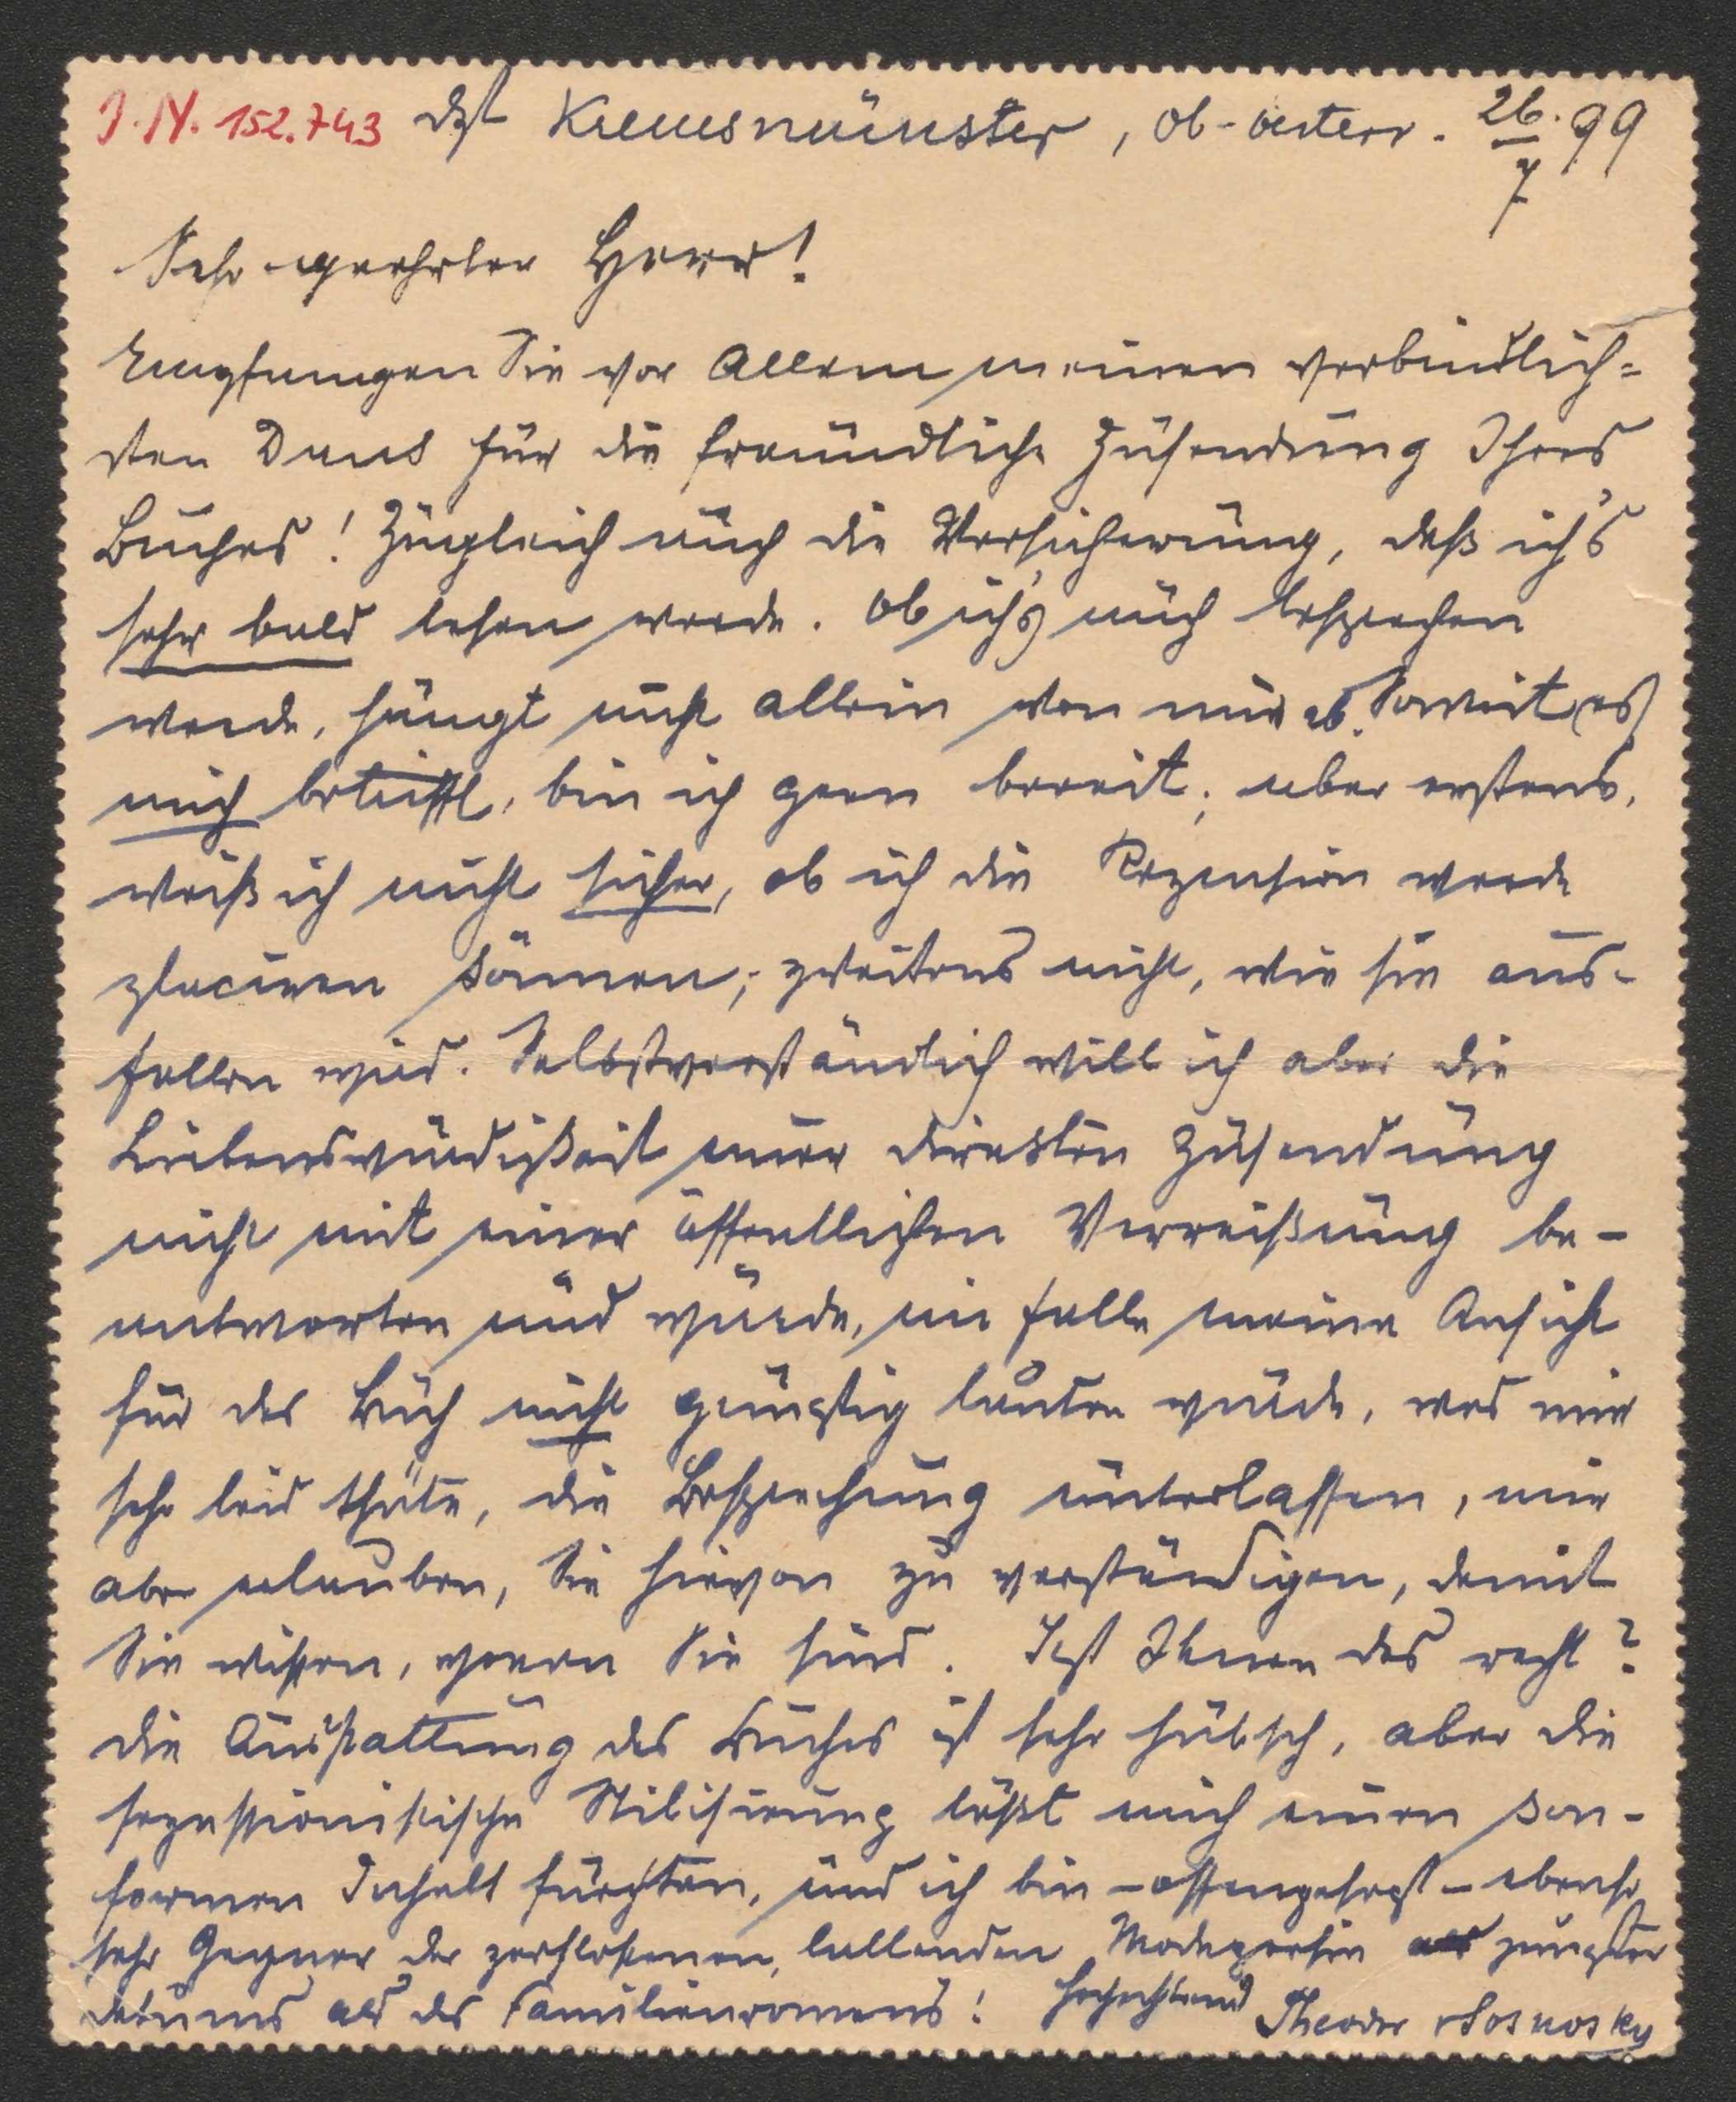 J.N. 152.743 dzt Kremsmünster, Ob-oesterr. 26./7 99
Sehr geehrter Herr!
Empfangen Sie vor Allem meinen verbindlich=
sten Dank für die freundliche Zusendung Ihres
Buches! Zugleich auch die Versicherung, daß ich's
sehr bald lesen werde. Ob ich's auch besprechen
werde, hängt nicht allein von mir ab. Soweit es
mich betrifft, bin ich gern bereit; aber erstens,
weiß ich nicht sicher, ob ich die Rezension werde
placiren können; zweitens nicht, wie sie aus-
fallen wird. Selbstverständlich will ich aber die
Liebenswürdigkeit einer direkten Zusendung
nicht mit einer öffentlichen Verreißung be-
antworten und würde, im Falle meine Ansicht
für das Buch nicht günstig lauten würde, was mir
sehr leid thäte, die Besprechung unterlassen, mir
aber erlauben, Sie hievon zu verständigen, damit
Sie wissen, woran Sie sind. Ist Ihnen das recht?
Die Ausstattung des Buches ist sehr hübsch, aber die
sezessionistische Stilisirung läßt mich einen kon-
formen Inhalt fürchten, und ich bin – offengesagt – ebenso
sehr Gegner der zerflossenen, lallenden Modepoesie jüngsten
Datums als des Familienromans! Hochachtend Theodor vSosnosky